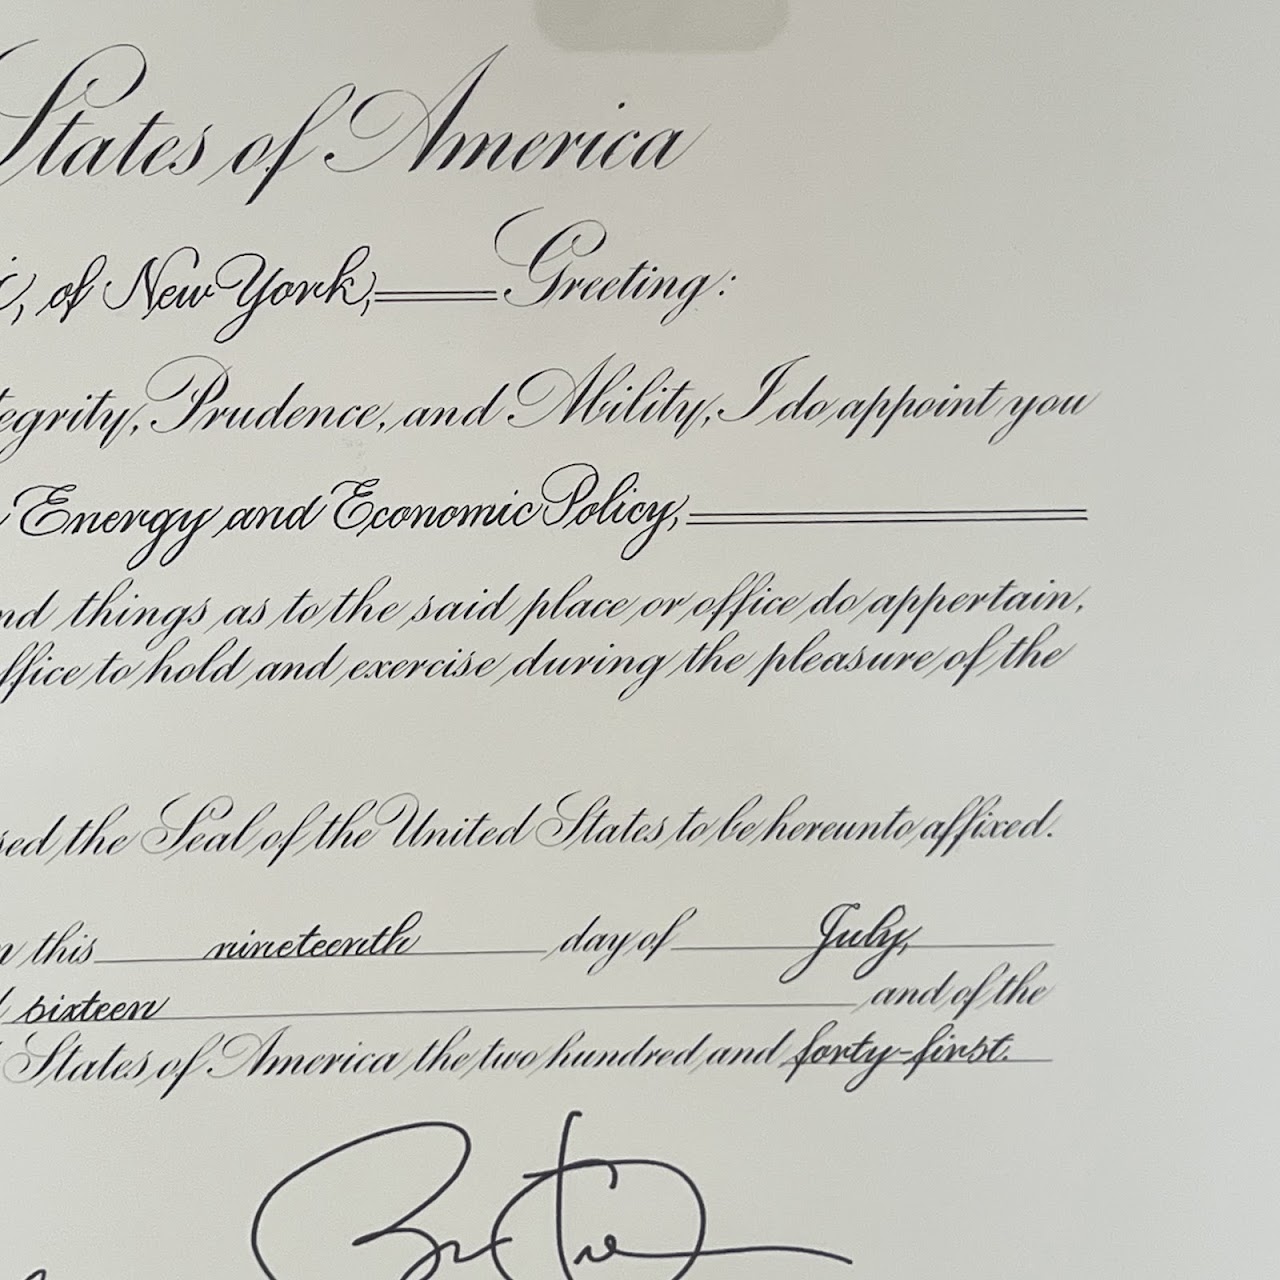 States of America
, of New York, Greeting:
tegrity, Prudence, and Ability, I do appoint you
Energy and Economic Policy,
nd things as to the said place or office do appertain,
ffice to hold and exercise during the pleasure of the
sed the Seal of the United States to be hereunto affixed.
this nineteenth day of July,
sixteen and of the
States of America the two hundred and forty-first.